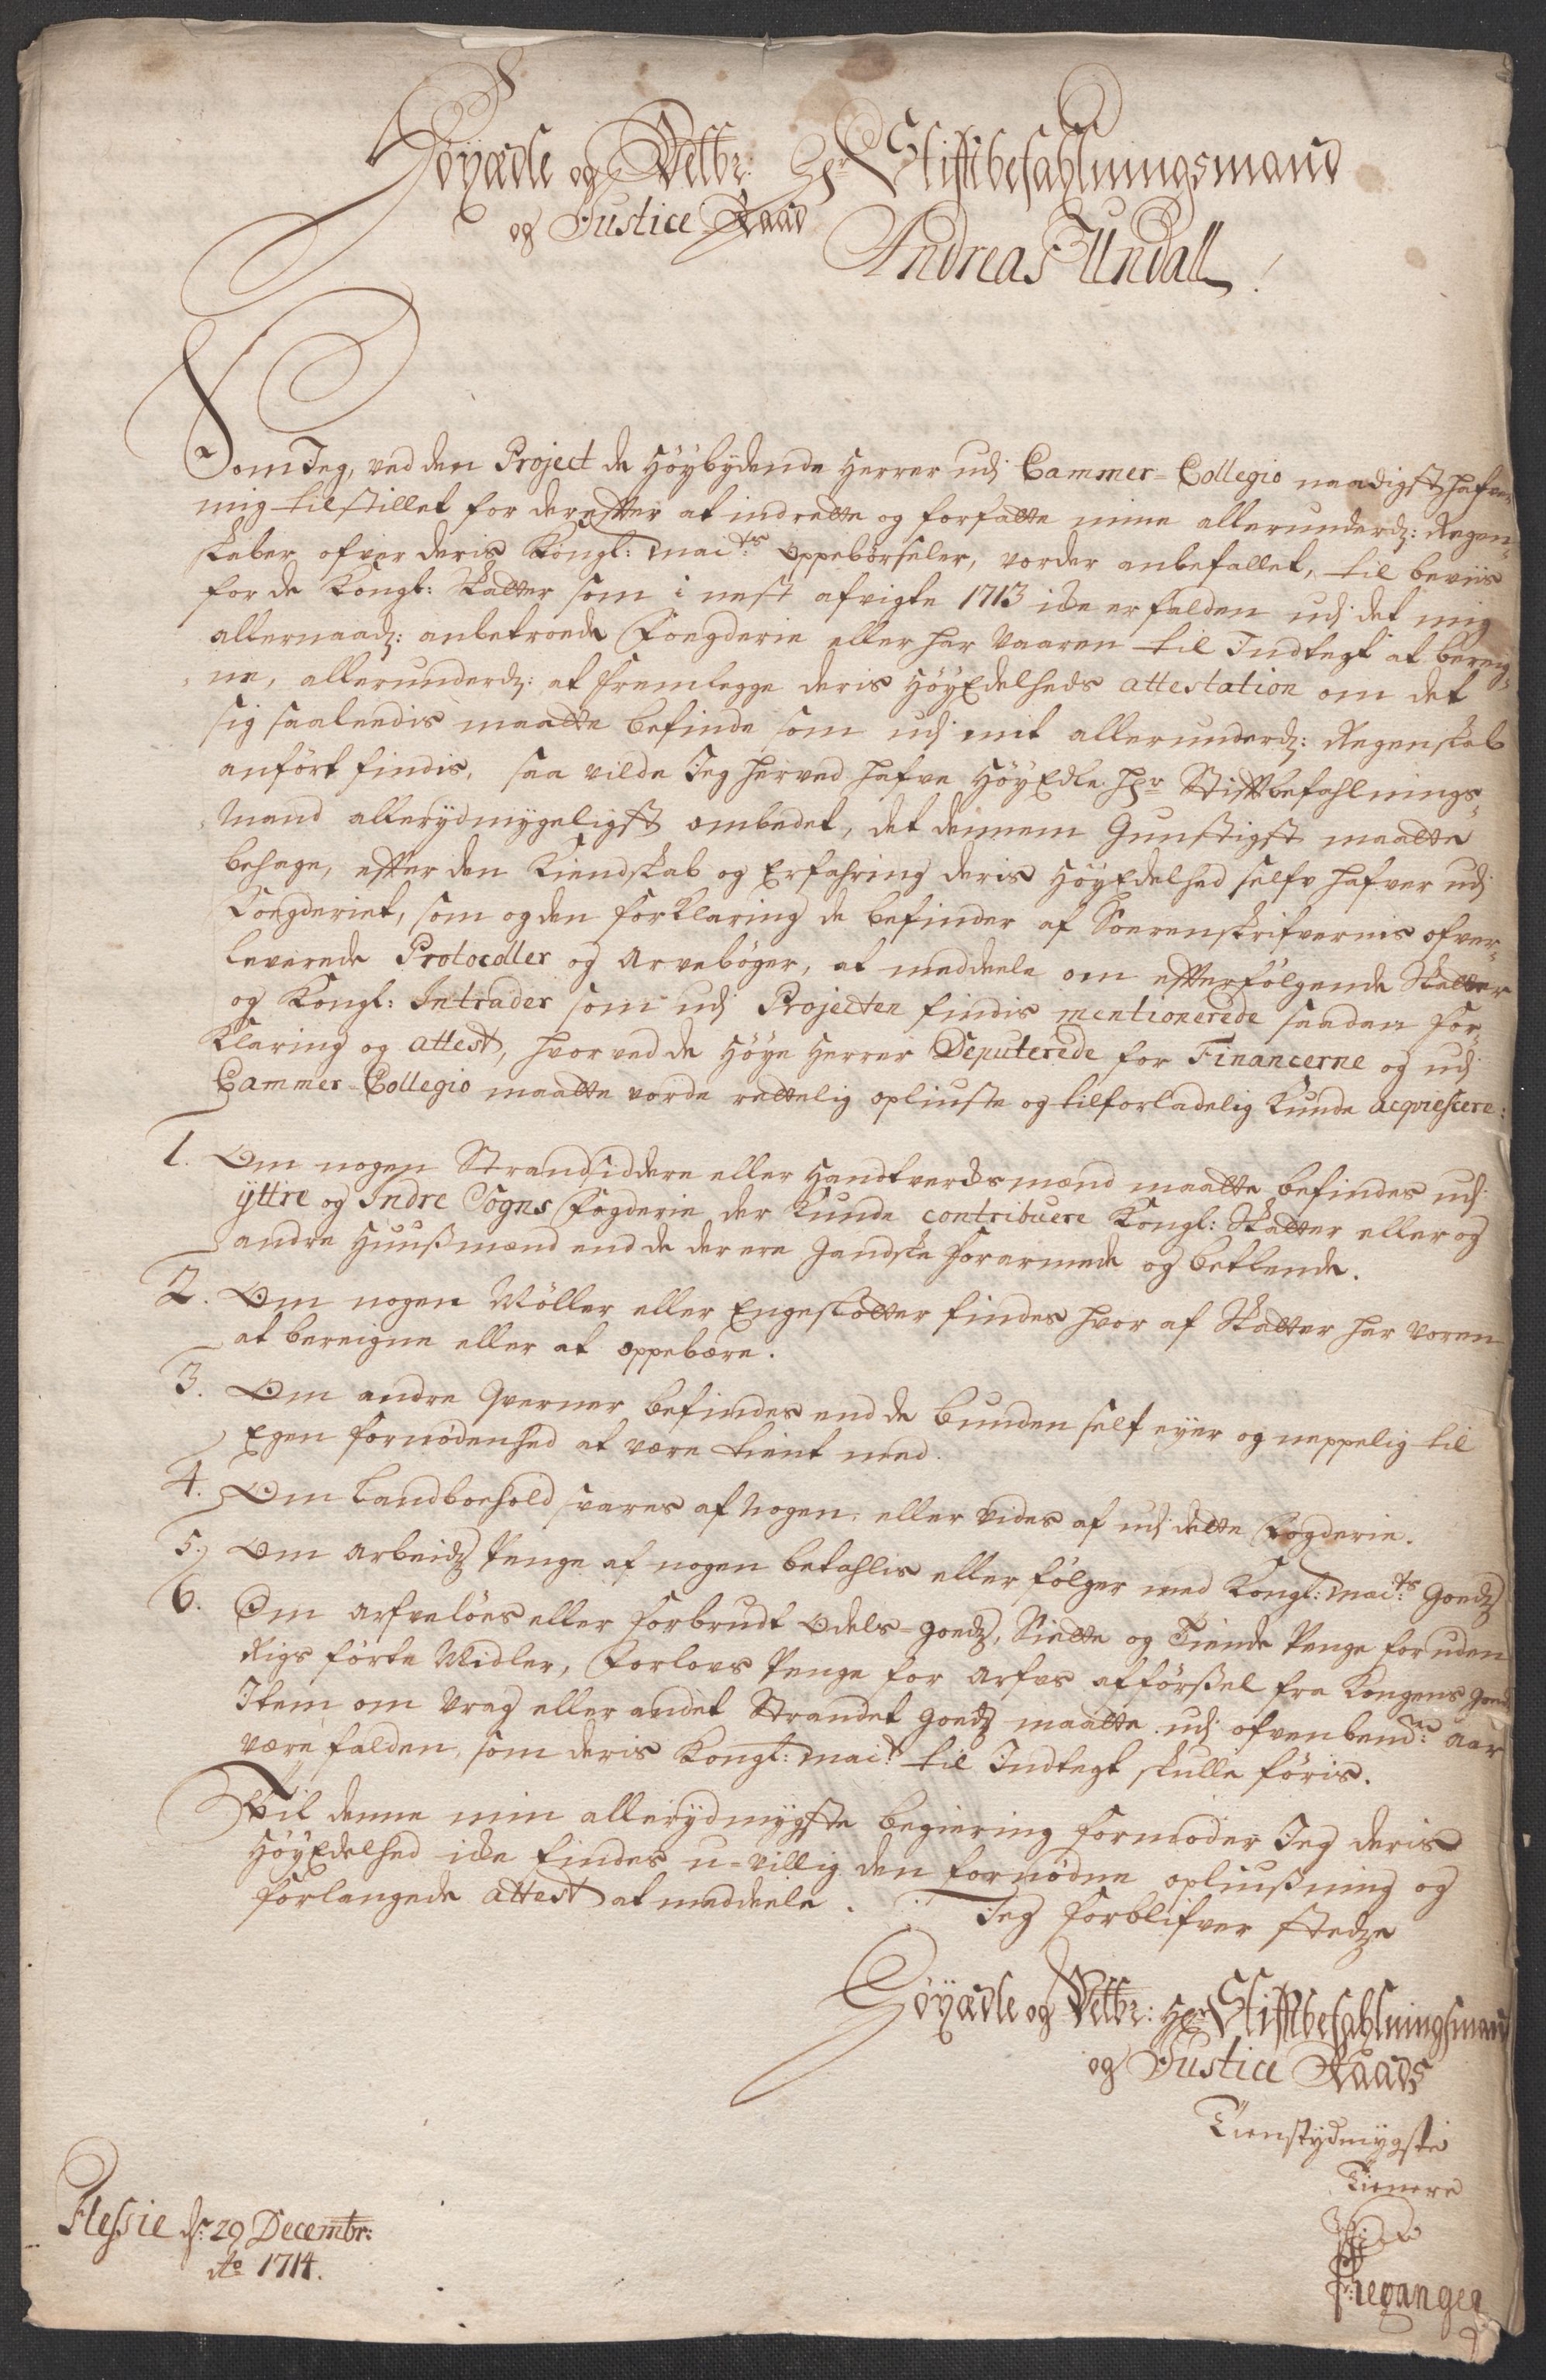 Höyædle og Velbr: Hr Stiftbefahlningsmand
og Justice Raad
Andreas Undall
Som Jeg, ved den Project de Höybydende Herrer udj Cammer-Collegio naadigst hafver
mig tilstillet for derefter at indrette og forfatte mine allerunderd: Regen-
skaber ofver deris Kongl: Maits Oppebörseler, vorder anbefallet, til beviis
for de Kongl: Skatter som i nest afvigte 1713 icke er falden udj det mig
allernaad: anbetroede Foegderie eller har vaaren til Indtegt at bereig-
ne, allerunderd: at fremlegge deris HöyEdelheds attestation om det
sig saaleedis maatte befinde som udj mit allerunderd: Regenskab
anfört findis, saa vilde Jeg herved hafve HöyEdle Hr Stiftbefahlnings-
Mand allerydmygeligst ombedet, det dennem Gunstigst maatte
behage, efter den Kiendskab og Erfahring deris HöyEdelhed self hafver udj
Foegderiet, som og den forklaring de befinder af Sorenskrifvernis ofver-
leverede Protocoller og Arvebøger, at meddeele om efterfölgende Skatter
og Kongl: Intrader som udj Projecten findis mentionerede saadan for-
Klaring og attest, hvorved de Höye Herrer Deputerede for Financerne og udj
Cammer-Collegio maatte vorde rettelig opliuste og tilforladelig Kunde acqviescere:
1. Om nogen Strandsiddere eller Handtverksmænd maatte befindes udj
ÿttre og Indre Sogns Fogderie der Kunde contribuere Kongl: Skatter eller og
andre Huusmænd end de der ere gandske forarmede og betlende.
2. Om nogen Möller eller Engeslötter findes hvor af Skatter har voren
at bereigne eller at oppebære.
3. Om andre Qverner befindes end de bunden self eyer og neppelig til
Egen fornödenhed at være tient med.
4. Om Landboehold svares af Nogen, eller vides af udj dette Fogderie.
5. Om Arbeidz Penge af nogen betahlis eller fölger med Kongl: Maits Goedz
6. Om Arfvelöes eller forbrudt Odels-goedz, Siette og Tiende Penge foruden
Rigs förte Midler, Forlovs Penge for Arfvs afförsel fra Kongens Goedz
Item om Vrag eller andet Strandet goedz maatte udj ofvenbente Aar
være falden, som deris Kongl: Mait til Indtegt skulle föris.
Til denne min allerydmygste begiering formoder Jeg deris
HöyEdelhed icke findes u-villig den fornödne opliusning og
forlangede attest at meddeele. Jeg forblifver stedze
Höyædle og Velbr: Hr Stiftbefahlningsmand
og Justice Raads
Tienstydmygste
Tienere
Flessie d: 29 Decembr:
Ao 1714.